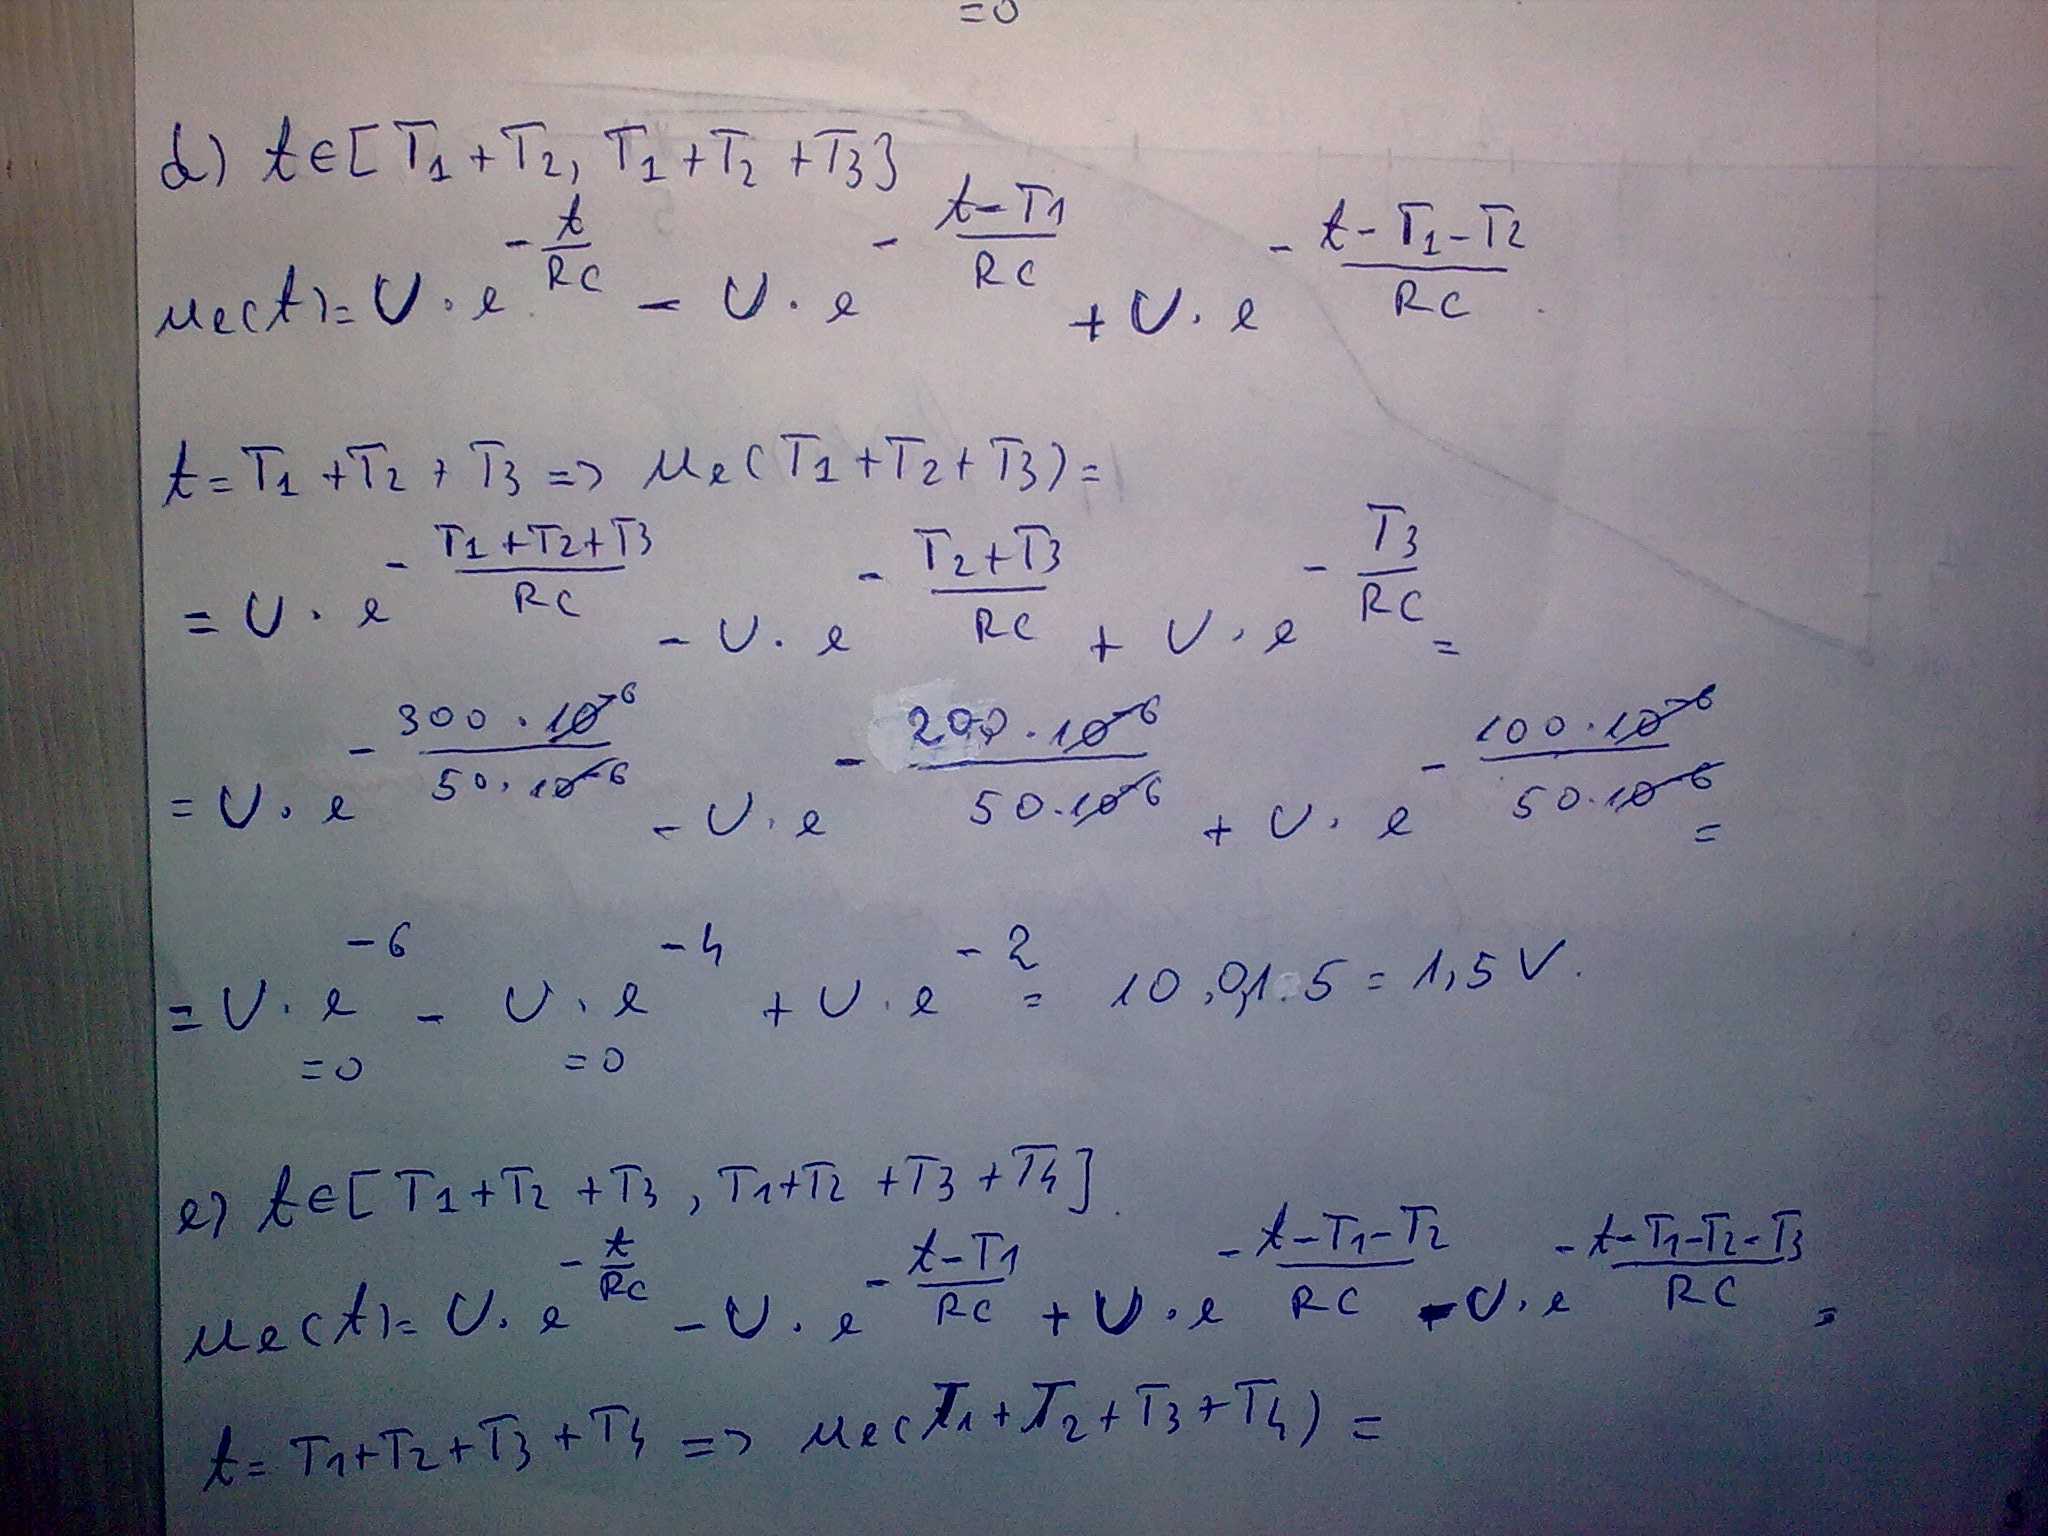 =0
d) t∈[T1+T2, T1+T2+T3]
ue(t)=U·e^(-t/RC) - U·e^(-(t-T1)/RC) + U·e^(-(t-T1-T2)/RC).
t=T1+T2+T3 => ue(T1+T2+T3)=
=U·e^(-(T1+T2+T3)/RC) - U·e^(-(T2+T3)/RC) + U·e^(-T3/RC) =
=U·e^(-(300·10^-6)/(50·10^-6)) - U·e^(-(200·10^-6)/(50·10^-6)) + U·e^(-(100·10^-6)/(50·10^-6)) =
=U·e^-6 - U·e^-4 + U·e^-2 = 10,0,1 5 = 1,5V.
=0 =0
e) t∈[T1+T2+T3, T1+T2+T3+T4].
ue(t)=U·e^(-t/RC) - U·e^(-(t-T1)/RC) + U·e^(-(t-T1-T2)/RC) - U·e^(-(t-T1-T2-T3)/RC) =
t=T1+T2+T3+T4 => ue(T1+T2+T3+T4)=